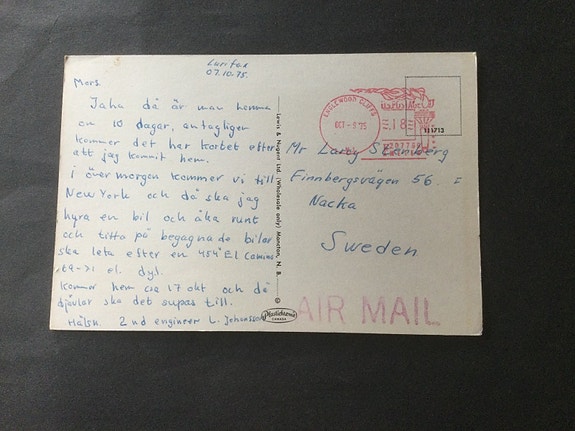 07.10.75.
Mors.
Jaha då är man hemma
om 10 dagar, antagligen
kommer det här kortet efter
att jag kommit hem.
i övermorgon kommer vi till
New York och då ska jag
hyra en bil och åka runt
och titta på begagnade bilar
ska leta efter en 454 El Camino
69-71 el. dyl.
kommer hem ca 17 okt och då
djävlar ska det supas till.
Hälsn. 2nd engineer L. Johansson
Lewis & Nugent Ltd. (Wholesale only) Moncton, N. B.
Plastichrome
CANADA
ENGLEWOOD CLIFFS
OCT-9'75
N.J.
18
117713
Mr Larry Strömberg
Finnbergsvägen 56
Nacka
Sweden
AIR MAIL